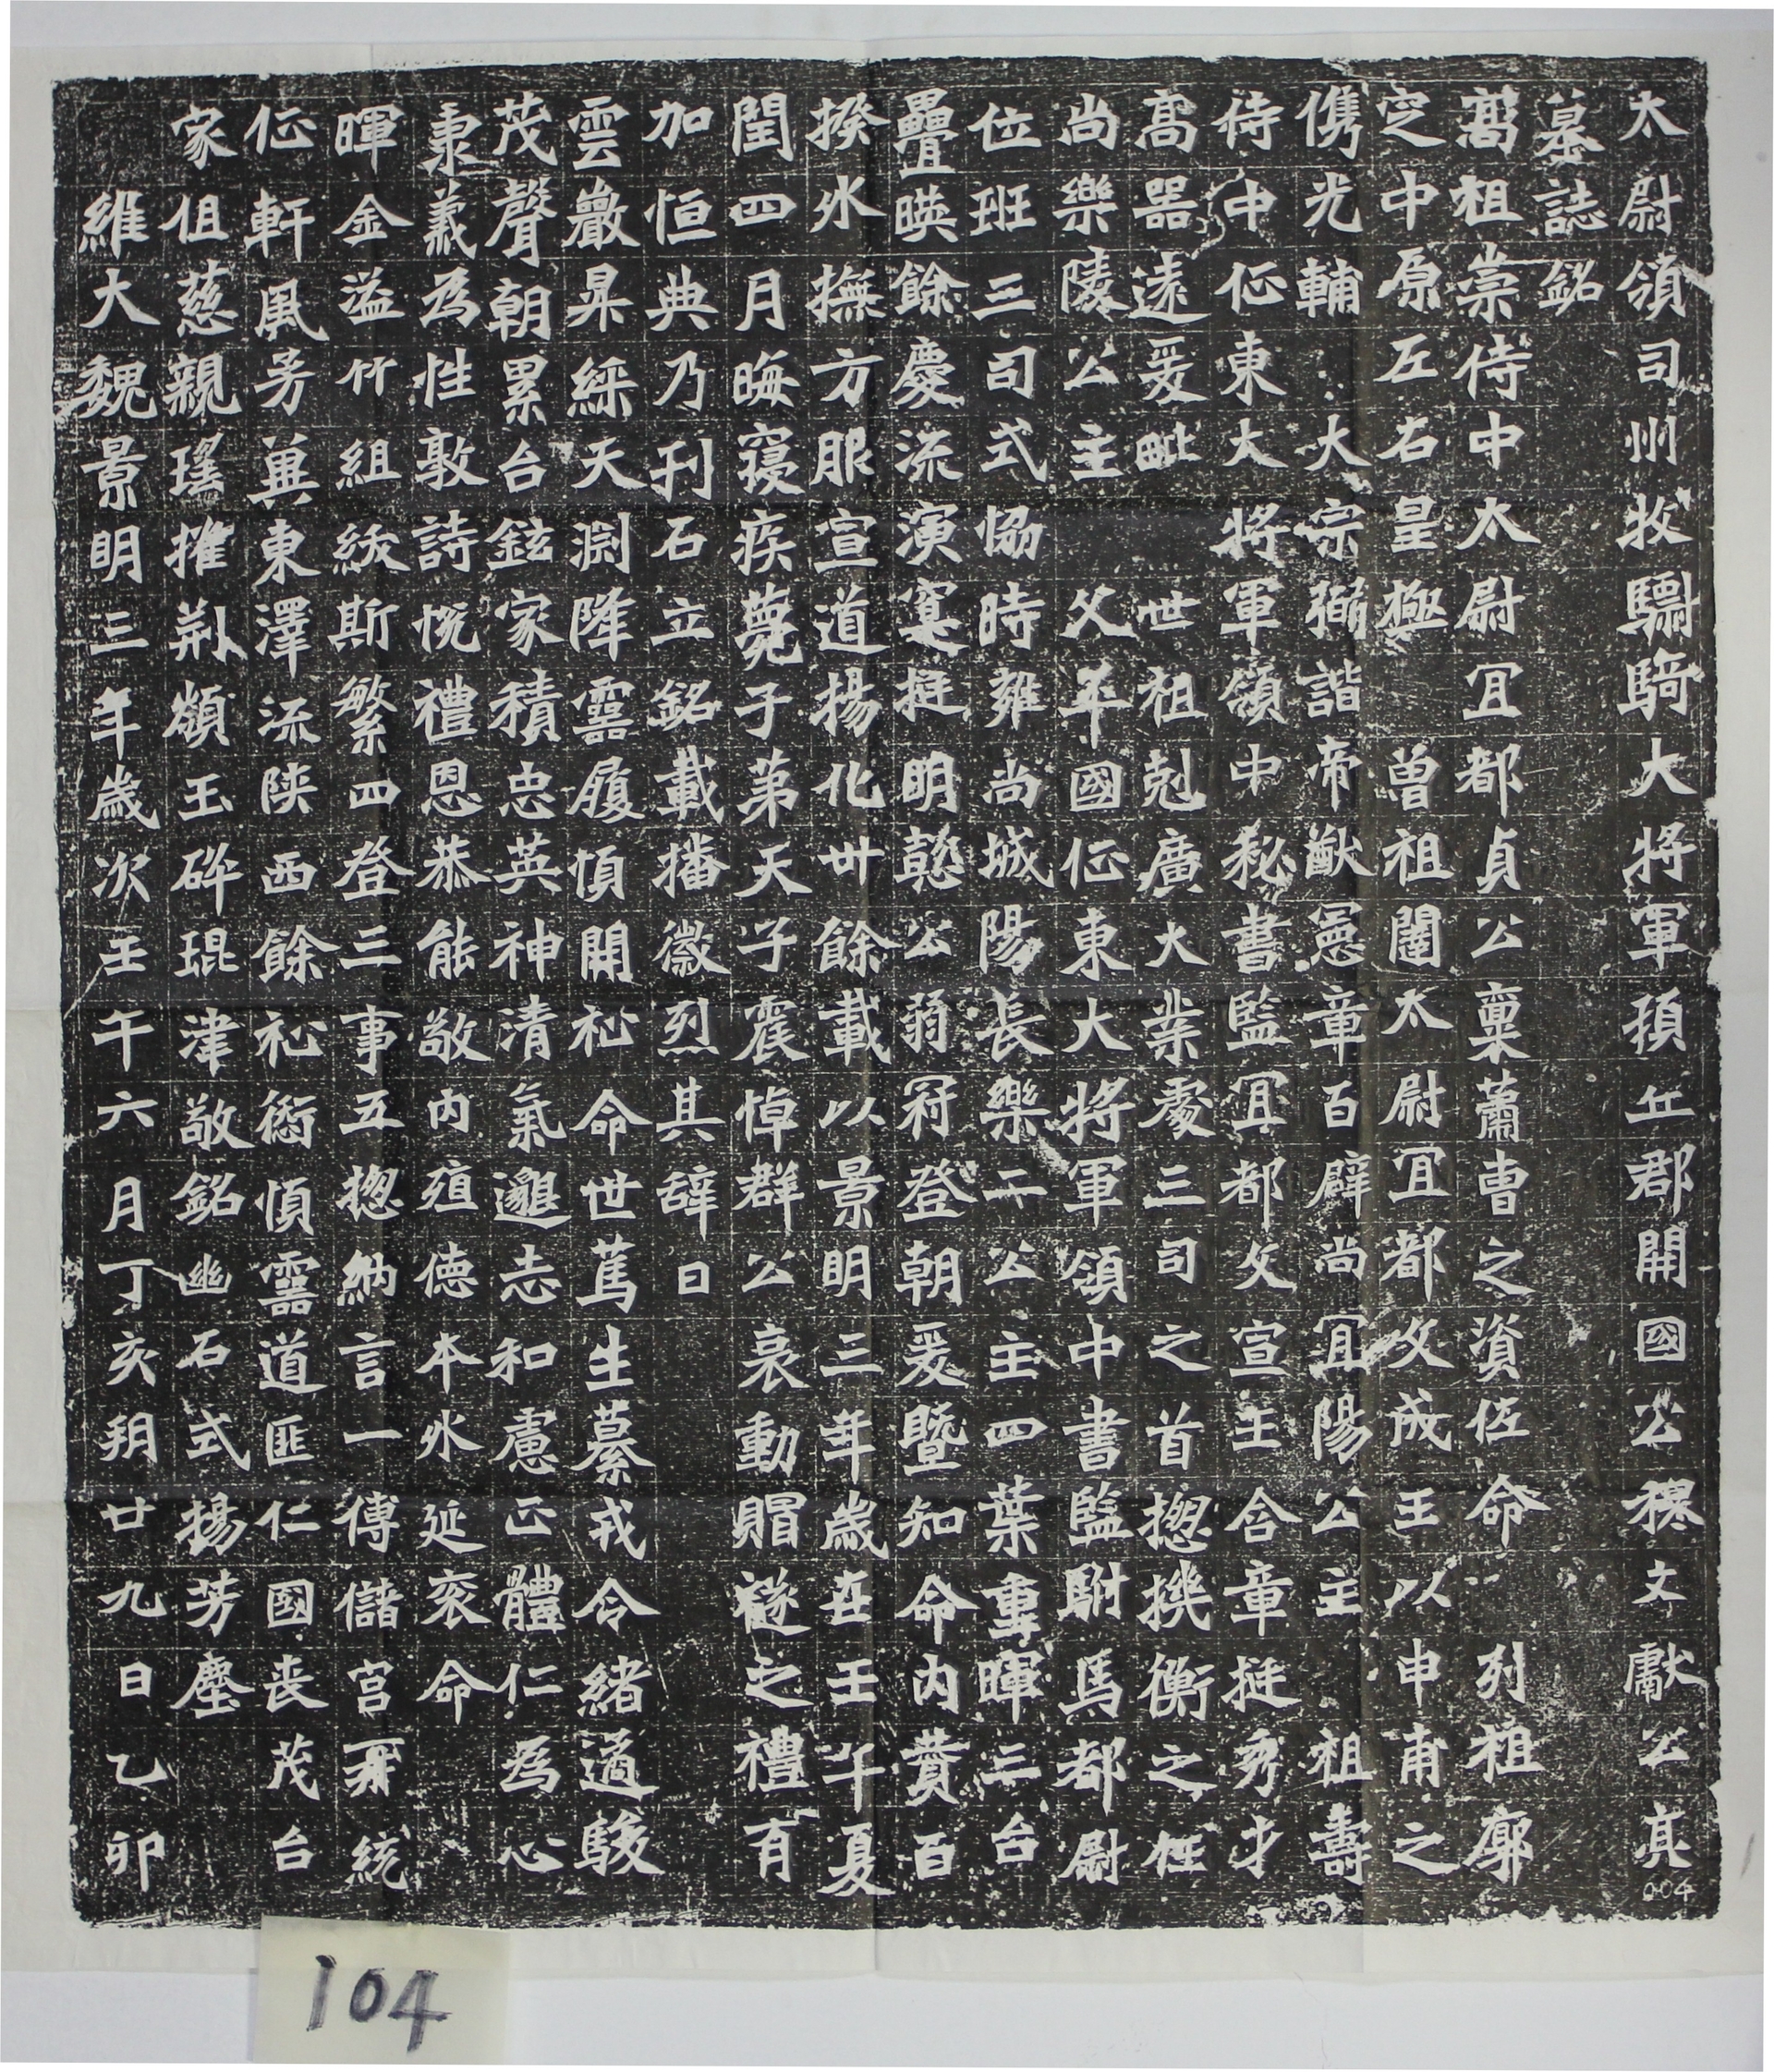 太尉領司州牧驃騎大將軍頓丘郡開國公穆文獻公亮
墓誌銘
高祖崇侍中太尉宜都貞公稟蕭曹之資佐命列祖廓
定中原左右皇極曾祖闥太尉宜都文成王以申甫之
儁光輔大宗彌諧帝猷憲章百辟尚宜陽公主祖壽
侍中征東大將軍領中秘書監宜都文宣王含章挺秀才
高器遠爰毗世祖剋廣大業處三司之首揔機衡之任
尚樂陵公主父平國征東大將軍領中書監駙馬都尉
位班三司式協時雍尚城陽長樂二公主四葉重暉三台
疊暎餘慶流演寔挺明懿公弱冠登朝爰暨知命內贊百
揆外撫方服宣道揚化卅餘載以景明三年歲在壬午夏
閏四月晦寢疾薨于第天子震悼群公哀動賵襚之禮有
加恒典乃刊石立銘載播徽烈其辞曰
雲巖昇綵天淵降靈履順開祉命世篤生纂戎令緒遹駿
茂聲朝累台鉉家積忠英神清氣邈志和慮正體仁為心
秉義為性敦詩悅禮恩恭能敬內殖德本外延袞命
暉金溢竹組紱斯繁四登三事五揔納言一傅儲宮再統
征軒風芳冀東澤流陝西餘祉愆順靈道匪仁國喪茂台
家徂慈親瑤摧荊頹玉碎琨津敬銘幽石式揚芳塵
維大魏景明三年歲次壬午六月丁亥朔廿九日乙卯
004
104